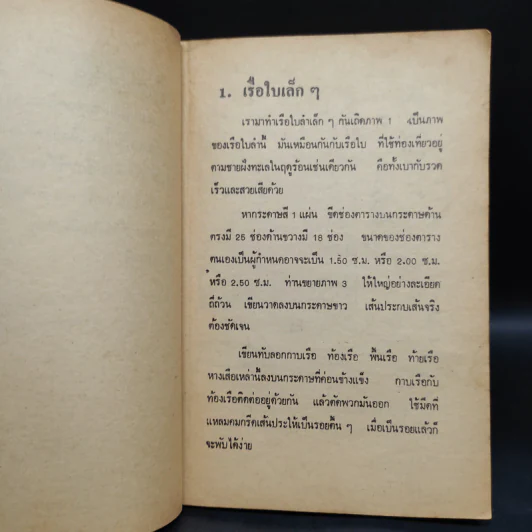 1. เรือใบเล็ก ๆ
เรามาทำเรือใบลำเล็ก ๆ กันเถิดภาพ 1 เป็นภาพ
ของเรือใบลำนี้ มันเหมือนกันกับเรือใบ ที่ใช้ท่องเที่ยวอยู่
ตามชายฝั่งทะเลในฤดูร้อนเช่นเดียวกัน คือทั้งเบากับรวด
เร็วและสวยเสียด้วย
หากระดาษสี 1 แผ่น ขีดช่องตารางบนกระดาษด้าน
ตรงมี 25 ช่องด้านขวางมี 16 ช่อง ขนาดของช่องตาราง
ตนเองเป็นผู้กำหนดอาจจะเป็น 1.50 ซ.ม. หรือ 2.00 ซ.ม.
หรือ 2.50 ซ.ม. ท่านขยายภาพ 3 ให้ใหญ่อย่างละเอียด
ถี่ถ้วน เขียนวาดลงบนกระดาษขาว เส้นประกบเส้นจริง
ต้องชัดเจน
เขียนทับลอกกาบเรือ ท้องเรือ พื้นเรือ ท้ายเรือ
หางเสือเหล่านี้ลงบนกระดาษที่ค่อนข้างแข็ง กาบเรือกับ
ท้องเรือติดต่ออยู่ด้วยกัน แล้วตัดพวกมันออก ใช้มีดที่
แหลมคมกรีดเส้นประให้เป็นรอยตื้น ๆ เมื่อเป็นรอยแล้วก็
จะพับได้ง่าย